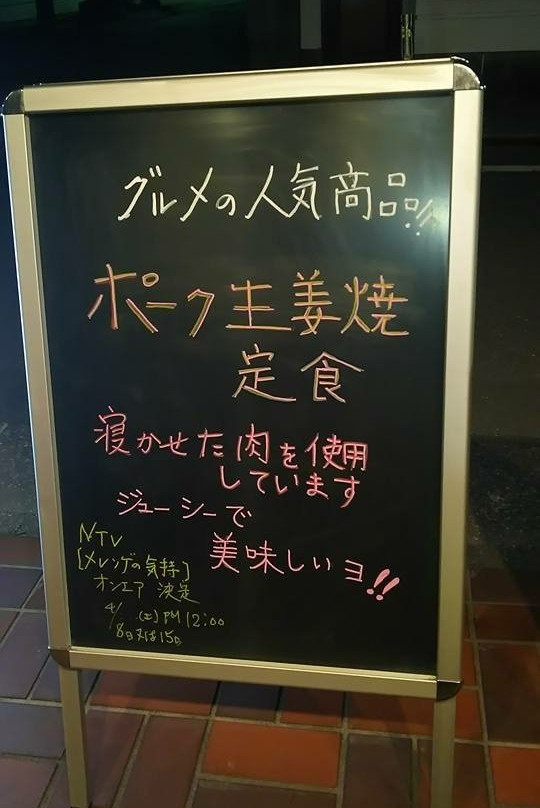 グルメの人気商品!!
ポーク生姜焼
定食
寝かせた肉を使用
しています
ジューシーで
美味しいヨ!!
NTV
[メレンゲの気持]
オンエア 決定
4/ (土) PM 12:00
8日又は15日